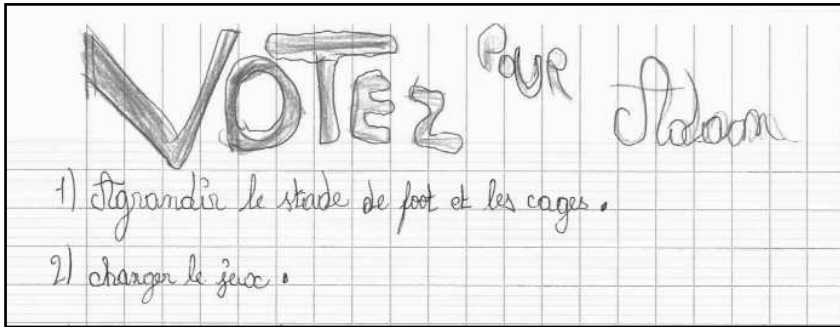 VOTEZ POUR
1) Agrandir le stade de foot et les cages.
2) changer le jeux.